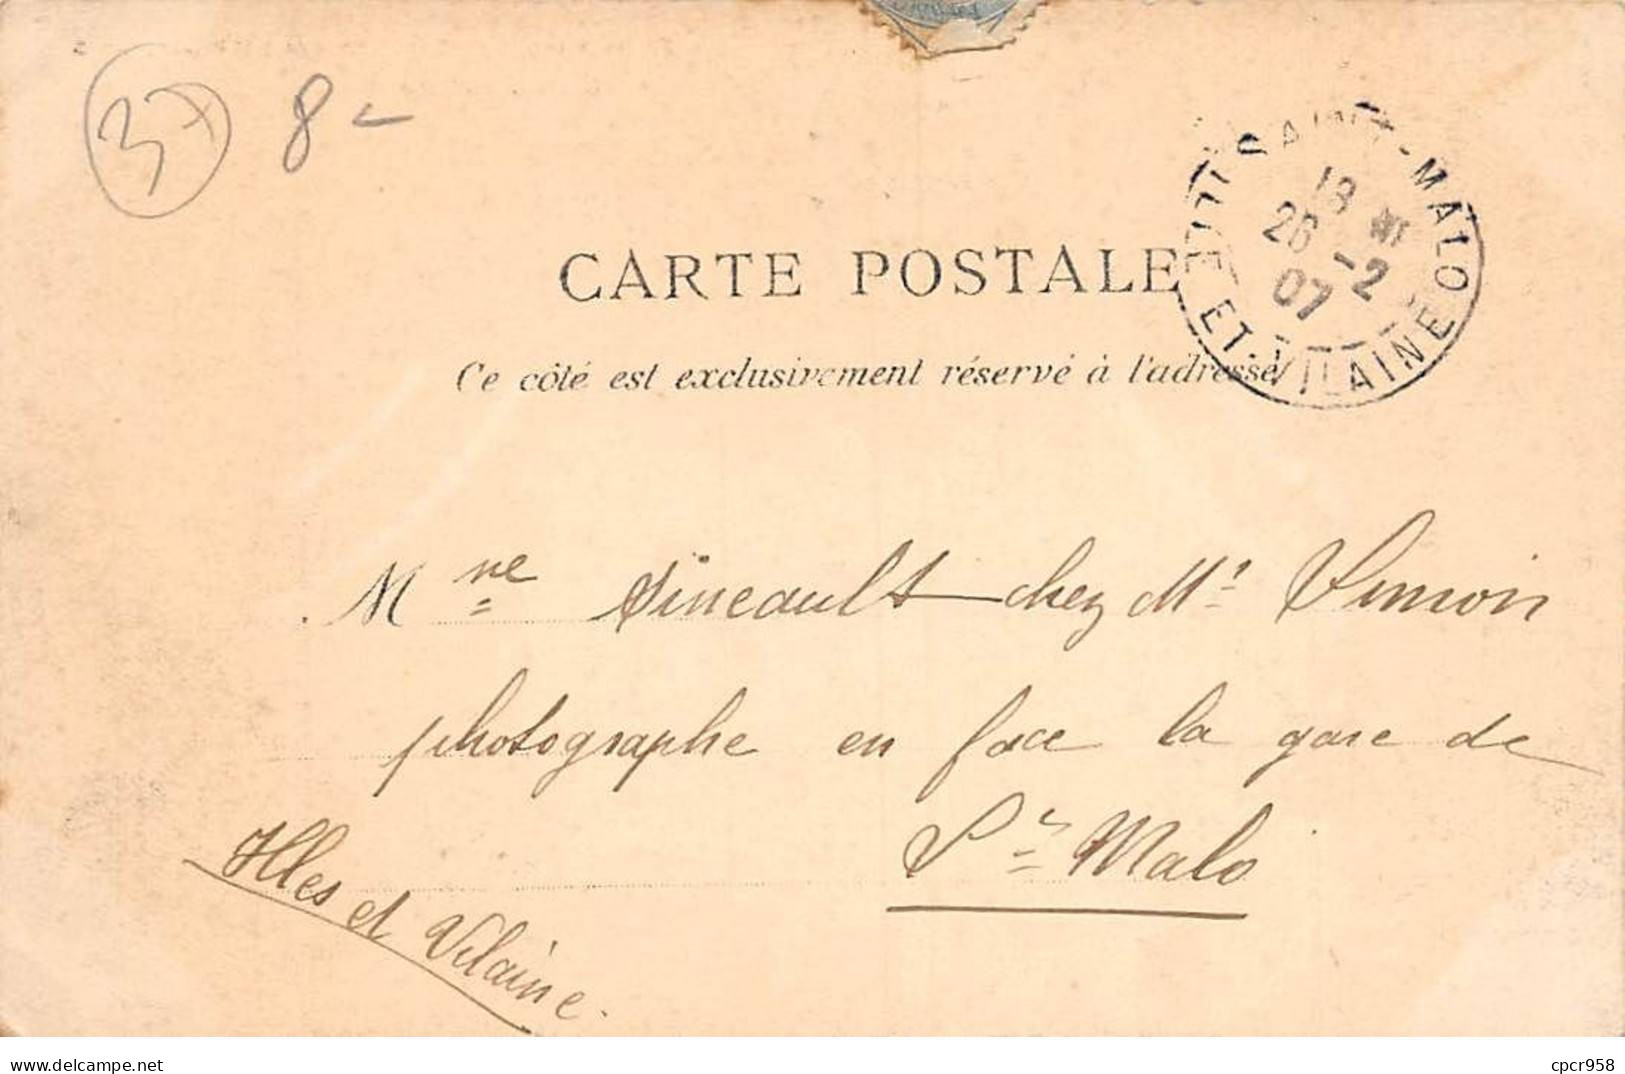 37 8-
SAINT-MALO
18
26 -2
07
ILLE ET-VILAINE
CARTE POSTALE
Ce côté est exclusivement réservé à l'adresse
Mme chez Mr Simon
photographe en face la gare de
St Malo
Illes et Vilaine.
www.delcampe.net
cpcr958